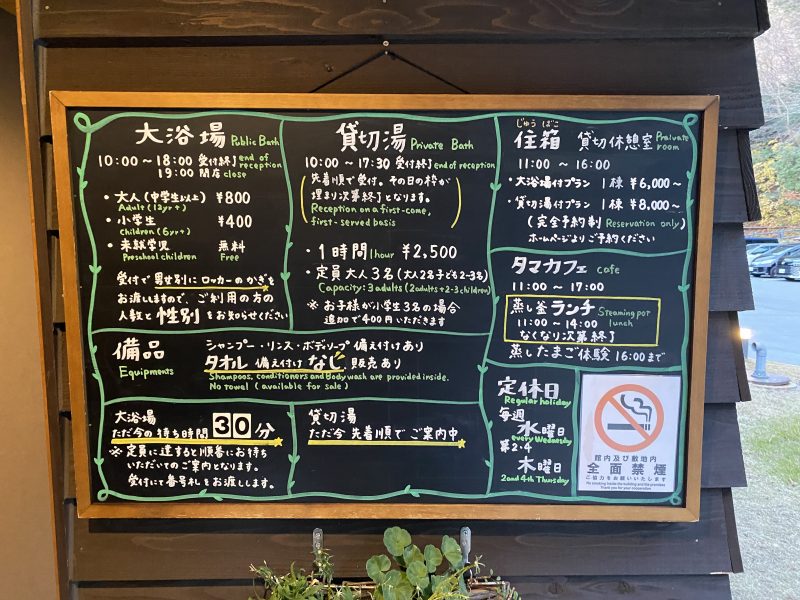 大浴場 Public Bath
10:00～18:00 受付終了 end of reception
19:00 閉店 close
・大人（中学生以上） ¥800
Adult (13yr+)
・小学生 ¥400
Children (6yr+)
・未就学児 無料
Preschool children Free
受付で男女別にロッカーのかぎを
お渡ししますので、ご利用の方の
人数と性別をお知らせください
貸切湯 Private Bath
10:00～17:30 受付終了 end of reception
先着順で受付。その日の枠が
埋まり次第終了となります。
Reception on a first-come,
first-served basis
・1時間 1hour ¥2,500
・定員大人3名（大人2名子ども2-3名）
Capacity: 3 adults (2adults+2-3children)
※お子様が小学生3名の場合
追加で400円いただきます
じゅう ばこ
住箱 貸切休憩室 Praivate room
11:00～16:00
・大浴場付プラン 1棟 ¥6,000～
・貸切湯付プラン 1棟 ¥8,000～
（完全予約制 Reservation only）
ホームページよりご予約ください
タマカフェ cafe
11:00～17:00
蒸し釜ランチ Steaming pot lunch
11:00～14:00
なくなり次第終了
蒸したまご体験 16:00まで
備品
Equipments
シャンプー・リンス・ボディソープ 備え付けあり
タオル 備え付けなし 販売あり
Shampoos, conditioners and Body wash are provided inside.
No towel (available for sale)
大浴場
ただ今の待ち時間 30分
※定員に達すると順番にお待ち
いただいてのご案内となります。
受付にて番号札をお渡しします。
貸切湯
ただ今 先着順でご案内中
定休日
Regular holiday
毎週
水曜日
every Wednesday
第2・4
木曜日
2and 4th Thursday
館内及び敷地内
全面禁煙
ご協力をお願いいたします
No smoking inside the building and the premises
Thank you for your cooperation.